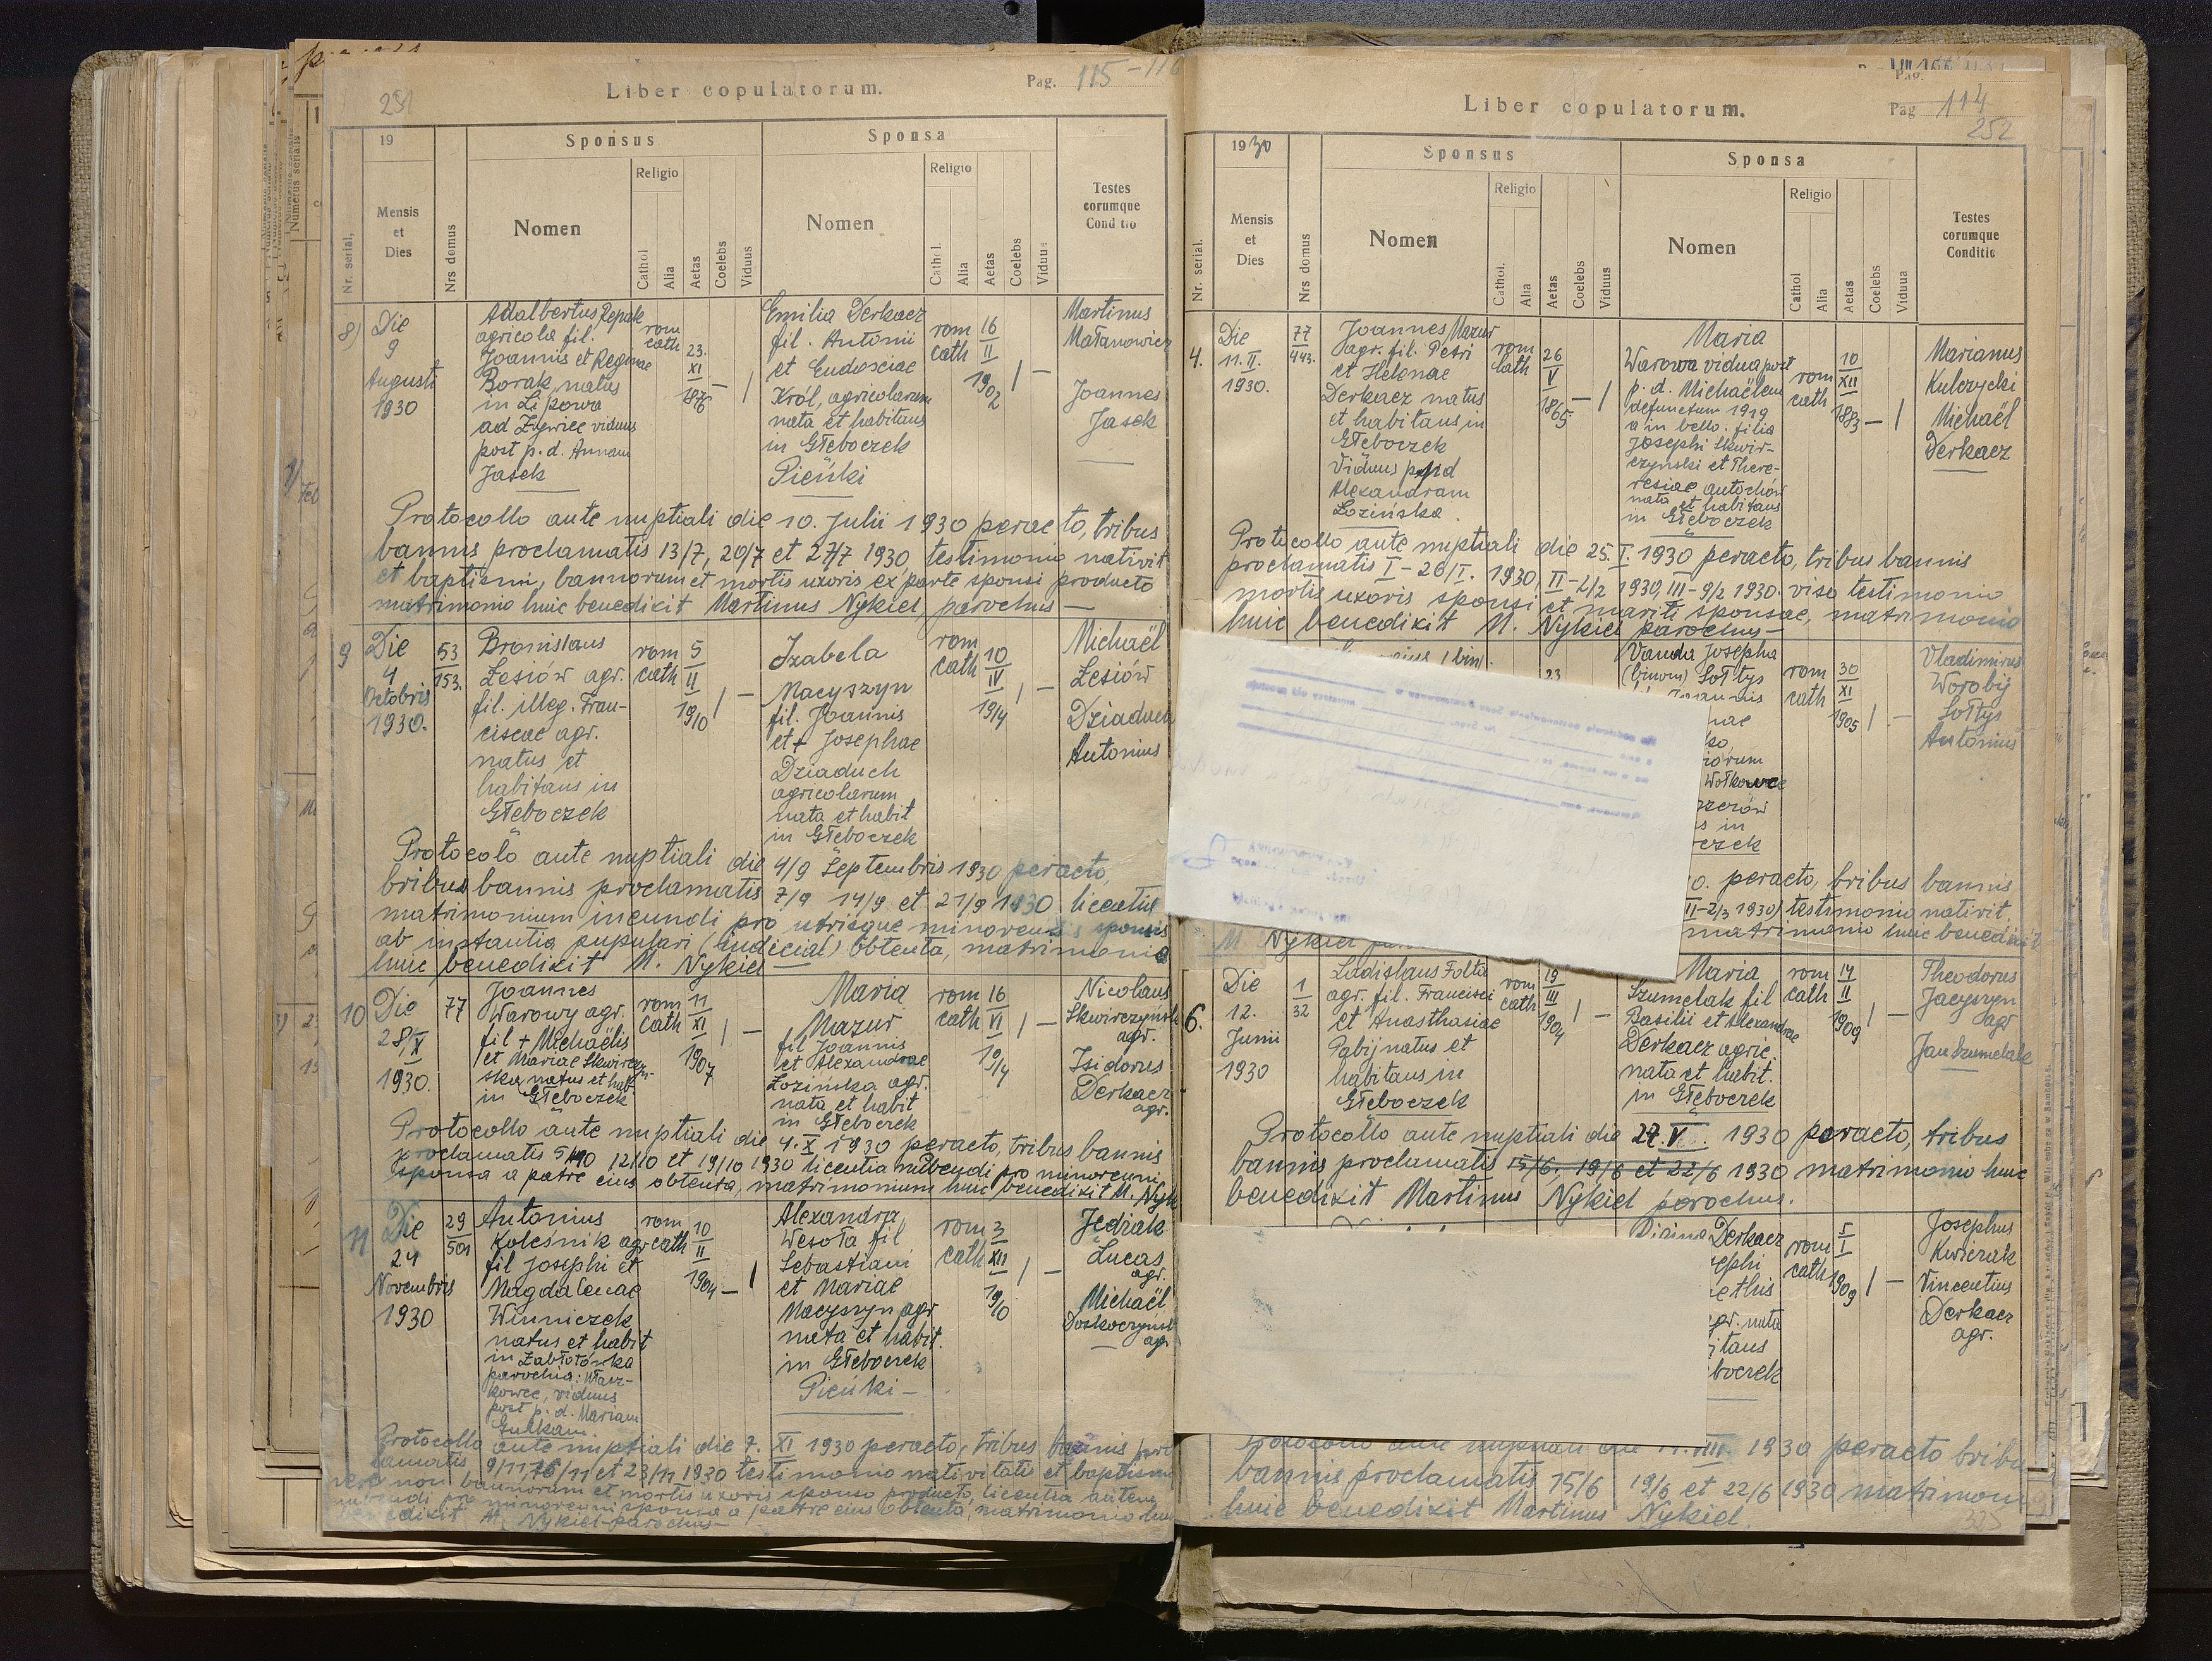 251
Liber copulatorum.
Pag. 115-116
19
Mensis et Dies
Nr. serial,
Nrs domus
Sponsus
Nomen
Religio
Cathol
Alia
Aetas
Coelebs
Viduus
Sponsa
Nomen
Religio
Cathol
Alia
Aetas
Coelebs
Testes
corumque
8)
Die
9
Augusti
1930
Adalbertus Repak
agricola fil.
Joannis et Reginae
Borak, natus
in Lipowa
ad Żywiec viduus
post p. d. Annam
Jasek
rom
cath
23.
XI
1876
— |
Emilia Derkacz
fil. Antonii
et Eudosciae
Król, agricolarum
nata et habitans
in Głęboczek
Pieńki
rom
cath
16
II
1902
| —
Martinus
Matanowicz
Joannes
Jasek
Protocollo ante nuptiali die 10. Julii 1930 peracto, tribus
bannis proclamatis 13/7, 20/7 et 27/7 1930, testimonio nativit
et baptismi, bannorum et mortis uxoris ex parte sponsi producto
matrimonio huic benedixit Martinus Nykiel, parochus —
9
Die
4
Octobris
1930.
53
153.
Bronislaus
Lesiów agr.
fil. illeg. Fran-
ciscae agr.
natus et
habitans in
Głęboczek
rom
cath
5
II
1910
| —
Izabela
Macyszyn
fil. Joannis
et + Josephae
Dziaduch
agricolarum
nata et habit
in Głęboczek
rom
cath
10
IV
1914
| —
Michaël
Lesiów
Dziaduch
Antonius
Protocolo ante nuptiali die 4/9 Septembris 1930 peracto,
tribus bannis proclamatis 7/9 14/9 et 21/9 1930 licentia
matrimonium ineundi pro utrisque minorennis sponsis
ab instantia pupulari (iudicial) obtenta, matrimonio
huic benedixit M. Nykiel —
10
Die
28/X
1930.
77
Joannes
Warowy agr.
fil + Michaëlis
et Mariae Skwirczyn-
ska natus et hab.
in Głęboczek
rom
cath
11
XI
1907
| —
Maria
Mazur
fil Joannis
et Alexandrae
Łozińska agr.
nata et habit
in Głęboczek
rom
cath
16
VI
1914
| —
Nicolaus
Skwirczyński
agr.
Isidorus
Derkacz
agr.
Protocollo ante nuptiali die 4. X 1930 peracto, tribus bannis
proclamatis 5/10 12/10 et 19/10 1930 licentia nubendi pro minorenni
sponsa a patre eius obtenta, matrimonium huic benedixit M. Nyk
11
Die
24
Novembris
1930
29
501
Antonius
Koleśnik agr
fil Josephi et
Magdalenae
Winniczek
natus et habit
in Zabłotówka
parochia: Własz-
kowce, viduus
post p. d. Mariam
Gulkam
rom
cath
10
II
1904
— |
Alexandra
Wesoła fil
Sebastiani
et Mariae
Macyszyn agr
nata et habit.
in Głęboczek
Pieńki —
rom
cath
3
XII
1910
| —
Jedrak
Lucas
agr.
Michaël
agr
Protocollo ante nuptiali die 7. XI 1930 peracto, tribus bannis pro
clamatis 9/11, 16/11 et 23/11 1930 testimonio nativitatis et baptismi
nec non bannorum et mortis uxoris sponso producto, licentia autem
nubendi pro minorenni sponsa a patre eius obtenta, matrimonio huic
benedixit M. Nykiel-parochus —
Liber copulatorum.
Pag 114
252
1930
Mensis et Dies
Nr. serial.
Nrs domus
Sponsus
Nomen
Religio
Cathol.
Alia
Aetas
Coelebs
Viduus
Sponsa
Nomen
Religio
Cathol
Alia
Aetas
Coelebs
Vidua
Testes
corumque
4.
Die
11. II.
1930.
77
443.
Joannes Mazur
agr. fil. Petri
et Helenae
Derkacz natus
et habitans in
Głęboczek
Viduus p. d
Alexandram
Łozińska
rom
cath
26
V
1865
— |
Maria
Warowa vidua post
p. d. Michaëlem
defunctum 1919
a in bello. filia
Josephi Skwir-
czyński et There-
siae
nata et habitans
in Głęboczek
rom
cath
10
XII
1883
— |
Marianus
Kulczycki
Michaël
Derkacz
Protocollo ante nuptiali die 25. I. 1930 peracto, tribus bannis
proclamatis I - 26/I. 1930 II - 2/2 1930, III - 9/2 1930. viso testimonio
mortis uxoris sponsi et mariti sponsae, matrimonio
huic benedixit M. Nykiel parochus —
(bin).
23
Vanda Josepha
(binom) Sołtys
Wołkowce
rom
cath
30
XI
1905
| —
Vladimirus
Worobij
Sołtys
Antonius
0. peracto, tribus bannis
II-2/3 1930) testimonio nativit.
matrimonio huic benedixit
M Nykiel
6.
Die
12.
Junii
1930
1
32
Ladislaus Folta
agr. fil. Francisci
et Anasthasiae
Pabij natus et
habitans in
Głęboczek
rom
cath
19
III
1904
| —
Maria
Szumelak fil
Basilii et Alexandrae
Derkacz agric.
nata et habit.
in Głęboczek
rom
cath
14
II
1909
| —
Theodorus
Jacyszyn
agr
Jan Szumelak
Protocollo ante nuptiali die 27. V. 1930 peracto, tribus
bannis proclamatis 15/6, 19/6 et 22/6 1930 matrimonio huic
benedixit Martinus Nykiel parochus.
Derkacz
ephi
ethis
gr. nata
itans
boczek
rom
cath
5
I
1909
| —
Josephus
Kwiczak
Vincentius
Derkacz
agr.
Protocollo ante nuptiali die 1930 peracto tribu
bannis proclamatis 15/6 19/6 et 22/6 1930 matrimon
huic benedixit Martinus Nykiel.
325